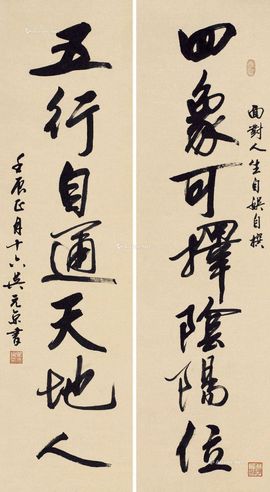 面對人生自娛自撰
四象可擇陰陽位
五行自通天地人
壬辰正月十六吳元京書